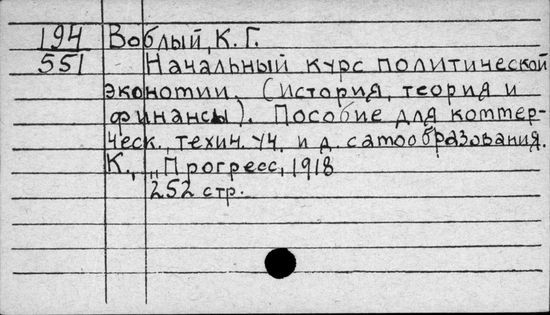 194 Воблый, К. Г.
551 Начальный курс политической
экономии. (история, теория и
финансы). Пособие для коммер-
ческ., технич. уч. и д. самообразования.
К., „Прогресс, 1918
252 стр.